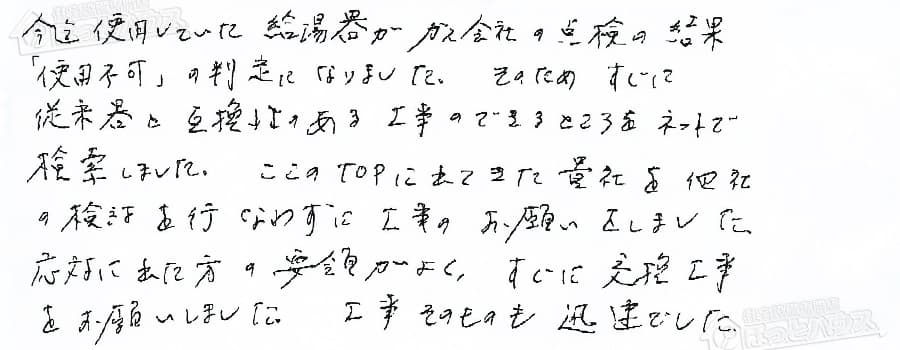 今迄使用していた給湯器がガス会社の点検の結果
「使用不可」の判定になりました。そのため すぐに
従来器と互換性のある工事のできるところをネットで
検索しました。ここのTOPに出てきた貴社を他社
の検討を行なわずに工事のお願いをしました。
応対に出た方の要領がよく、すぐに交換工事
をお願いしました。工事そのものも迅速でした。
ほっとハウス